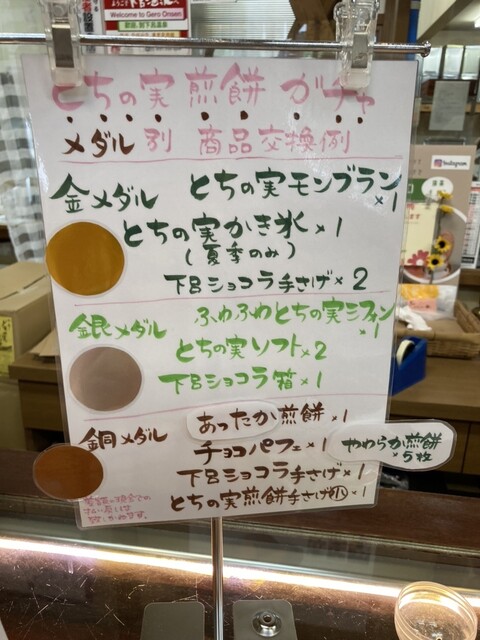 Welcome to Gero Onsen
とちの実 煎餅 ガチャ
メダル別 商品交換例
金メダル とちの実モンブラン×1
とちの実かき氷×1
(夏季のみ)
下呂ショコラ手さげ×2
銀メダル ふわふわとちの実シフォン×1
とちの実ソフト×2
下呂ショコラ箱×1
銅メダル あったか煎餅×1
チョコパフェ×1
やわらか煎餅×5枚
下呂ショコラ手さげ×1
とちの実煎餅手さげ小×1
Instagram